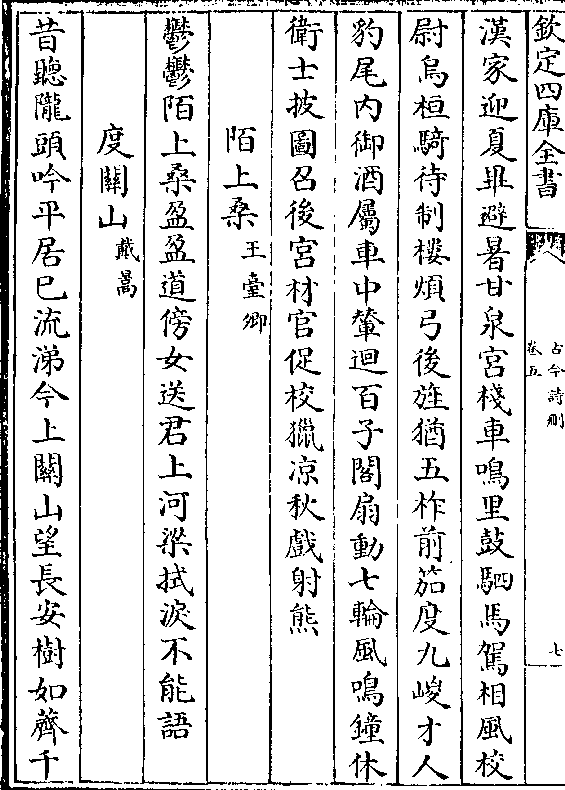 欽定四庫全書
古今詩刪
卷五
七
漢家迎夏畢避暑甘泉宮棧車鳴里鼓駟馬駕相風校
尉烏桓騎待制樓煩弓後旌猶五柞前笳度九嵕才人
豹尾内御酒屬車中輦迴百子閣扇動七輪風鳴鐘休
衛士披圖召後宮材官促校獵凉秋戲射熊
陌上桑王臺卿
鬱鬱陌上桑盈盈道傍女送君上河梁拭淚不能語
度關山戴暠
昔聽隴頭吟平居已流涕今上關山望長安樹如薺千